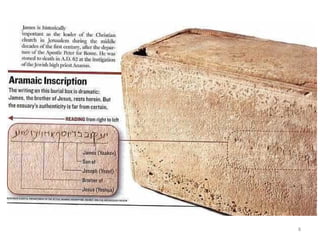 James is historically
important as the leader of the Christian
church in Jerusalem during the middle
decades of the first century, after the depar-
ture of the Apostle Peter for Rome. He was
stoned to death in A.D. 62 at the instigation
of the Jewish high priest Ananus.
Aramaic Inscription
The writing on this burial box is dramatic:
James, the brother of Jesus, rests herein. But
the ossuary's authenticity is far from certain.
READING from right to left
James (Yaakov)
Son of
Joseph (Yosef)
Brother of
Jesus (Yeshua)